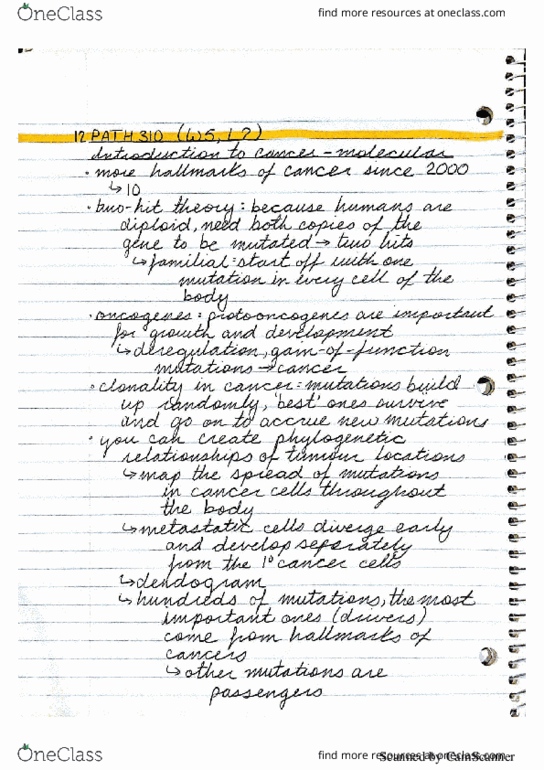 OneClass
find more resources at oneclass.com
12 PATH 310 (W5, L2)
Introduction to cancer - molecular
• more hallmarks of cancer since 2000
↳ 10
• two-hit theory: because humans are
diploid, need both copies of the
gene to be mutated → two hits
↳ familial: start off with one
mutation in every cell of the
body
• oncogenes: protooncogenes are important
for growth and development
↳ deregulation, gain-of-function
mutations → cancer
• clonality in cancer: mutations build
up randomly, 'best' ones survive
and go on to accrue new mutations
• you can create phylogenetic
relationships of tumour locations
↳ map the spread of mutations
in cancer cells throughout
the body
↳ metastatic cells diverge early
and develop seperately
from the 1° cancer cells
↳ dendogram
↳ hundreds of mutations, the most
important ones (drivers)
come from hallmarks of
cancers
↳ other mutations are
passengers
OneClass
find more resources at oneclass.com
Scanned by CamScanner